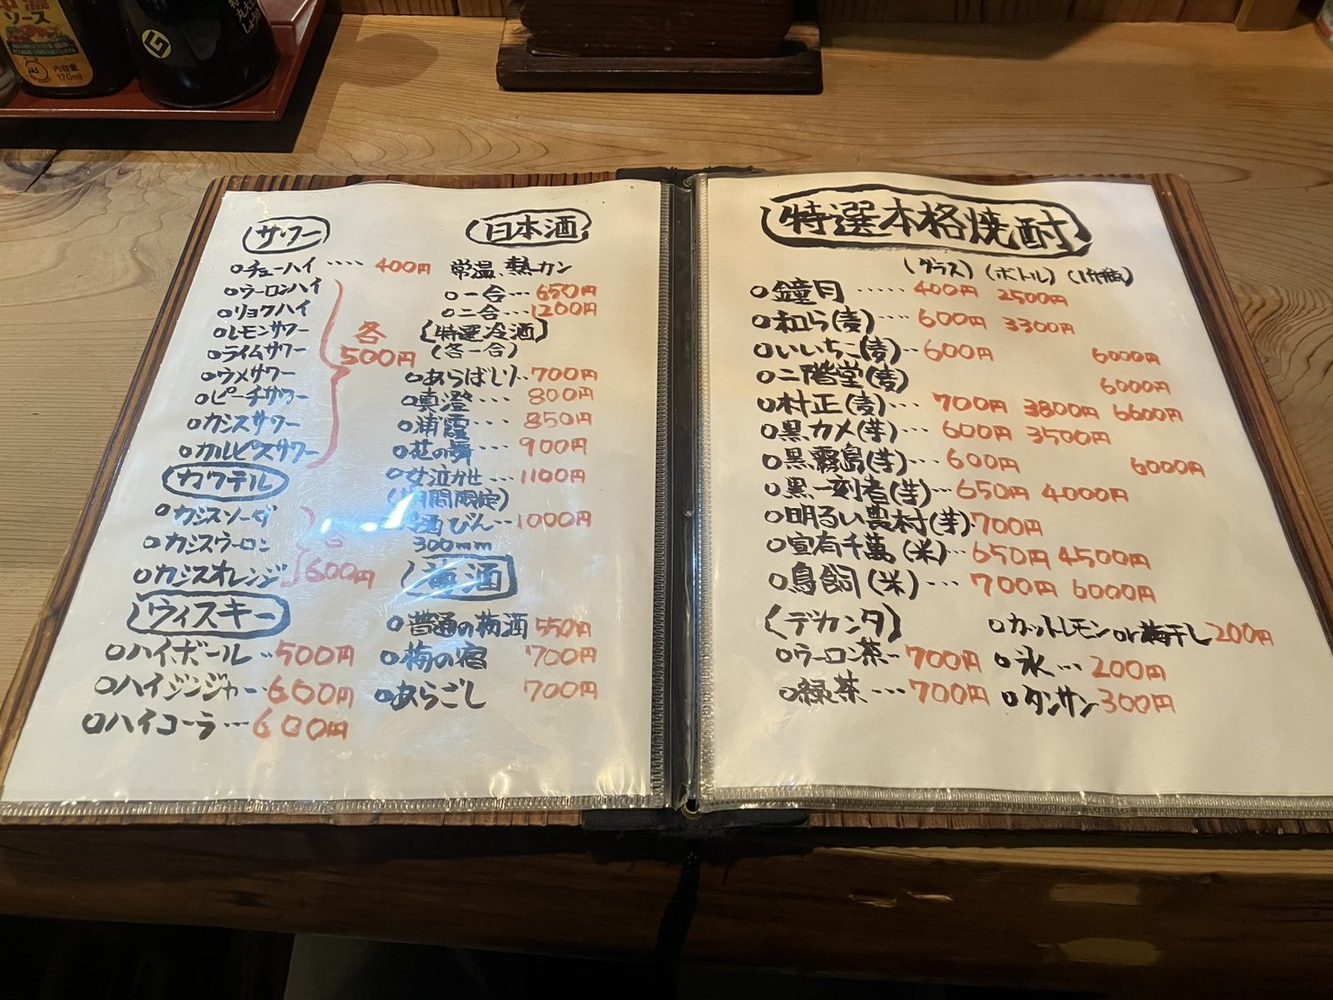 ソース
内容量
170ml
サワー
○チューハイ‥‥400円
○ウーロンハイ
○リョクハイ
○レモンサワー
○ライムサワー
○ウメサワー
○ピーチサワー
○カシスサワー
○カルピスサワー
各
500円
カクテル
○カシスソーダ
○カシスウーロン
○カシスオレンジ
600円
ウィスキー
○ハイボール‥500円
○ハイジンジャー‥600円
○ハイコーラ…600円
日本酒
常温、熱カン
○一合…650円
○二合…1200円
(特選冷酒)
(各一合)
○あらばしり‥700円
○真澄…800円
○浦霞…850円
○花の舞 900円
○女泣かせ…1100円
期間限定)
酒びん…1000円
300mm
梅酒
○普通の梅酒 550円
○梅の宿 700円
○あらごし 700円
特選本格焼酎
(グラス) (ボトル) (1升瓶)
○鏡月‥‥‥400円 2500円
○和ら(麦)‥‥600円 3300円
○いいちこ(麦)‥600円 6000円
○二階堂(麦) 6000円
○村正(麦)…700円 3800円 6600円
○黒カメ(芋)…600円 3500円
○黒霧島(芋)…600円 6000円
○黒一刻者(芋)…650円 4000円
○明るい農村(芋)‥700円
○宣有千萬(米)‥650円 4500円
○鳥飼(米)…700円 6000円
(デカンタ)
○ウーロン茶‥700円
○緑茶‥‥700円
○カットレモンor梅干し200円
○氷…200円
○タンサン300円